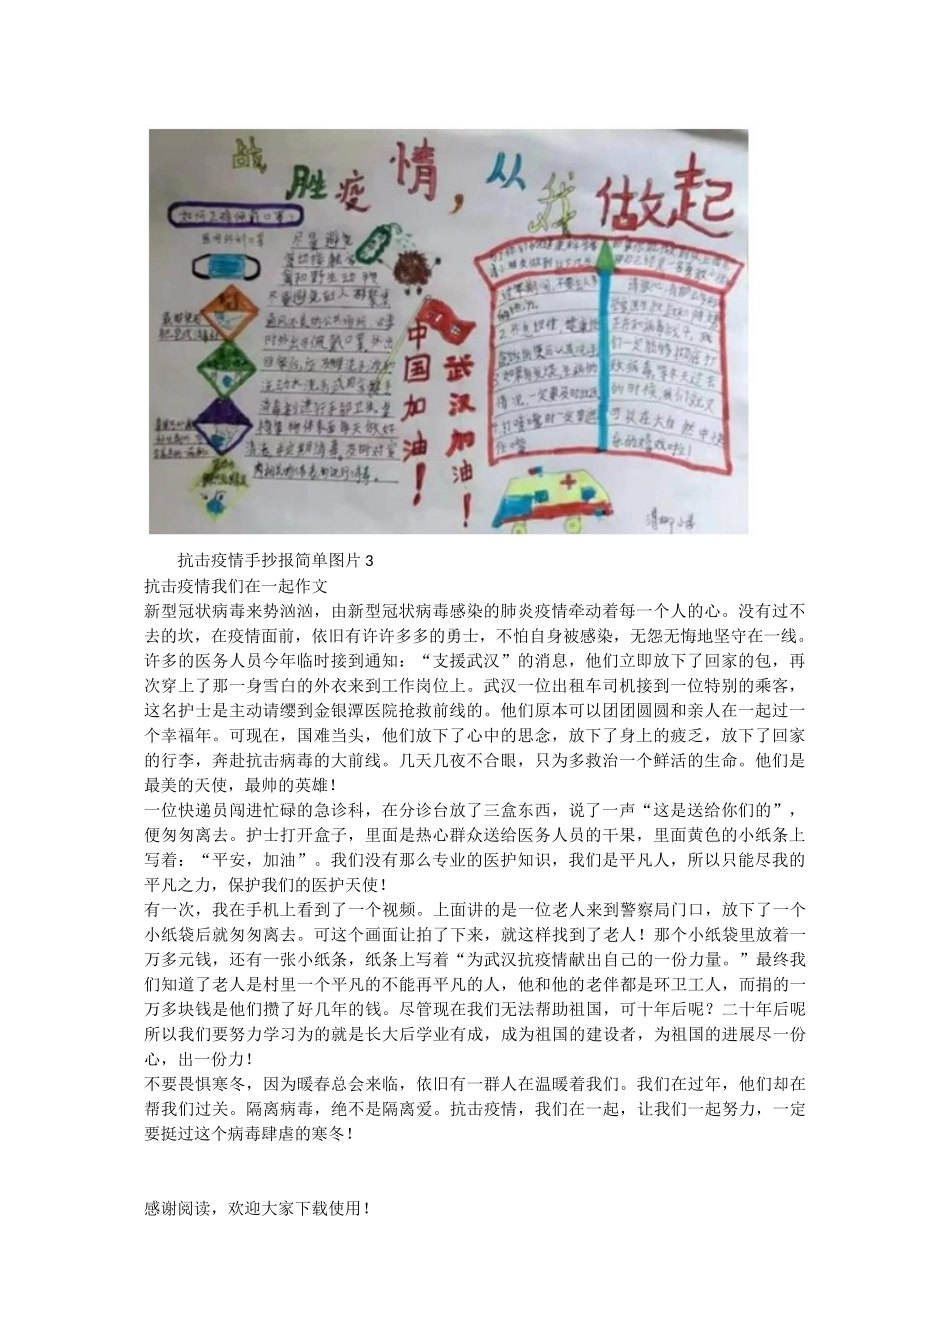 战胜疫情，从我做起
如何正确佩戴口罩？
医用外科口罩
尽量避免
密切接触家
禽和野生动物
尽量避免到人群聚集
中国加油！
武汉加油！
抗击疫情手抄报简单图片 3
抗击疫情我们在一起作文
新型冠状病毒来势汹汹，由新型冠状病毒感染的肺炎疫情牵动着每一个人的心。没有过不
去的坎，在疫情面前，依旧有许许多多的勇士，不怕自身被感染，无怨无悔地坚守在一线。
许多的医务人员今年临时接到通知：“支援武汉”的消息，他们立即放下了回家的包，再
次穿上了那一身雪白的外衣来到工作岗位上。武汉一位出租车司机接到一位特别的乘客，
这名护士是主动请缨到金银潭医院抢救前线的。他们原本可以团团圆圆和亲人在一起过一
个幸福年。可现在，国难当头，他们放下了心中的思念，放下了身上的疲乏，放下了回家
的行李，奔赴抗击病毒的大前线。几天几夜不合眼，只为多救治一个鲜活的生命。他们是
最美的天使，最帅的英雄！
一位快递员闯进忙碌的急诊科，在分诊台放了三盒东西，说了一声“这是送给你们的”，
便匆匆离去。护士打开盒子，里面是热心群众送给医务人员的干果，里面黄色的小纸条上
写着：“平安，加油”。我们没有那么专业的医护知识，我们是平凡人，所以只能尽我的
平凡之力，保护我们的医护天使！
有一次，我在手机上看到了一个视频。上面讲的是一位老人来到警察局门口，放下了一个
小纸袋后就匆匆离去。可这个画面让拍了下来，就这样找到了老人！那个小纸袋里放着一
万多元钱，还有一张小纸条，纸条上写着“为武汉抗疫情献出自己的一份力量。”最终我
们知道了老人是村里一个平凡的不能再平凡的人，他和他的老伴都是环卫工人，而捐的一
万多块钱是他们攒了好几年的钱。尽管现在我们无法帮助祖国，可十年后呢？二十年后呢
所以我们要努力学习为的就是长大后学业有成，成为祖国的建设者，为祖国的进展尽一份
心，出一份力！
不要畏惧寒冬，因为暖春总会来临，依旧有一群人在温暖着我们。我们在过年，他们却在
帮我们过关。隔离病毒，绝不是隔离爱。抗击疫情，我们在一起，让我们一起努力，一定
要挺过这个病毒肆虐的寒冬！
感谢阅读，欢迎大家下载使用！